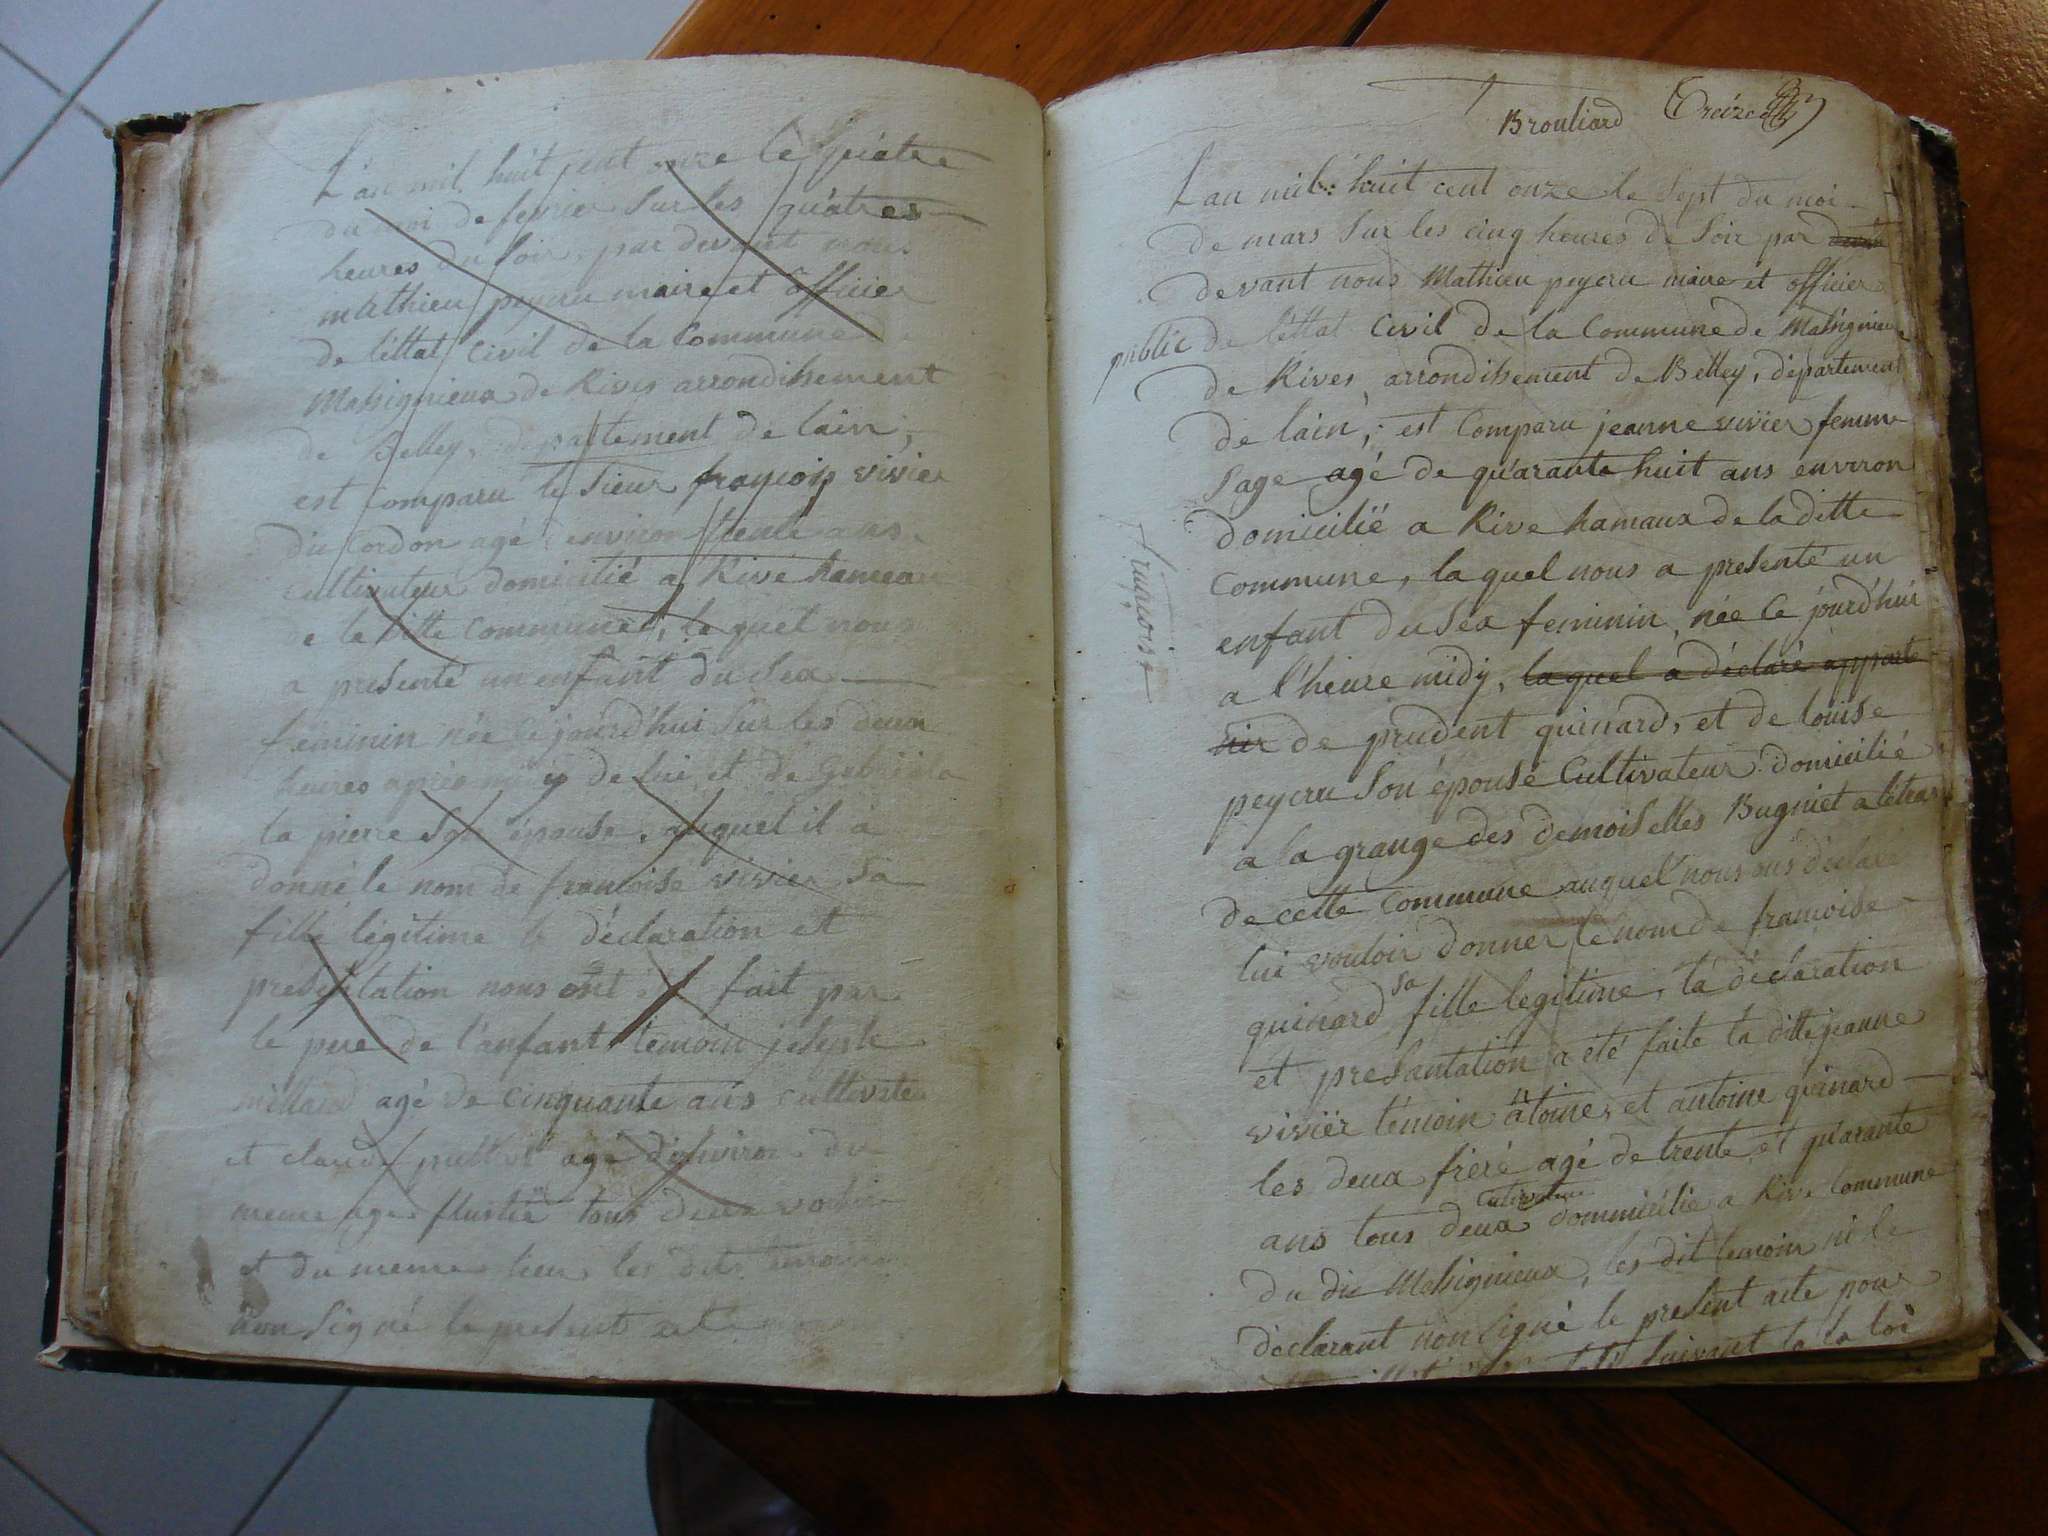 L'an mil huit cent onze le quatre
du moi de fevrier sur les quatres
heures du soir, par devant nous
mathieu peyeru maire et officier
de l'ettat civil de la Commune de
Massignieux de Rives arrondissement
de Belley, departement de lain,
est comparu le sieur françois vivier
du Cordon agé environ trente ans
cultivateur domicilié a Rive hameau
de la ditte commune, le quel nous
a presenté un enfant du sex
feminin née ce jourd'hui sur les deux
heures après midy de lui et de
la pierre son épouse, auquel il a
donné le nom de francoise vivier sa
fille legitime la déclaration et
presentation nous ont fait par
le pere de l'anfant temoin
agé de cinquante ans cultivateu
et claude agé d'environ du
meme age tous deux
et du meme lieu les dits temoins
non signé le present acte
Brouliard Treize
L'an mil huit cent onze le sept du moi
de mars sur les cinq heures de soir par devan
devant nous Mathieu peyeru maire et officier
public de l'ettat Civil de la Commune de Massignieux
de Rives, arrondissement de Belley, departement
de lain, est comparu jeanne vivier femme
sage agé de quarante huit ans environ
domicilié a Rive hamaux de la ditte
Commune, laquel nous a presenté un
enfant du sex feminin, née ce jourd'hui
francoise
a l'heure midy, laquel a déclaré apparte
nir de prudent guinard, et de louise
peyeru son épouse Cultivateur domicilié
a la grange des demoiselles Bugniet a
de cette Commune auquel nous déclaré
lui vouloir donner le nom de francoise
guinard sa fille legitime, la déclaration
et presantation a eté faite la ditte jeanne
vivier témoin âtoine, et antoine guinard
les deux frere agé de trente et quarante
ans tous deux cultivateur dommicilié a Rive Commune
du dit Massignieux, les dit temoin ni le
déclarant non signé le present acte pour
suivant la la loi